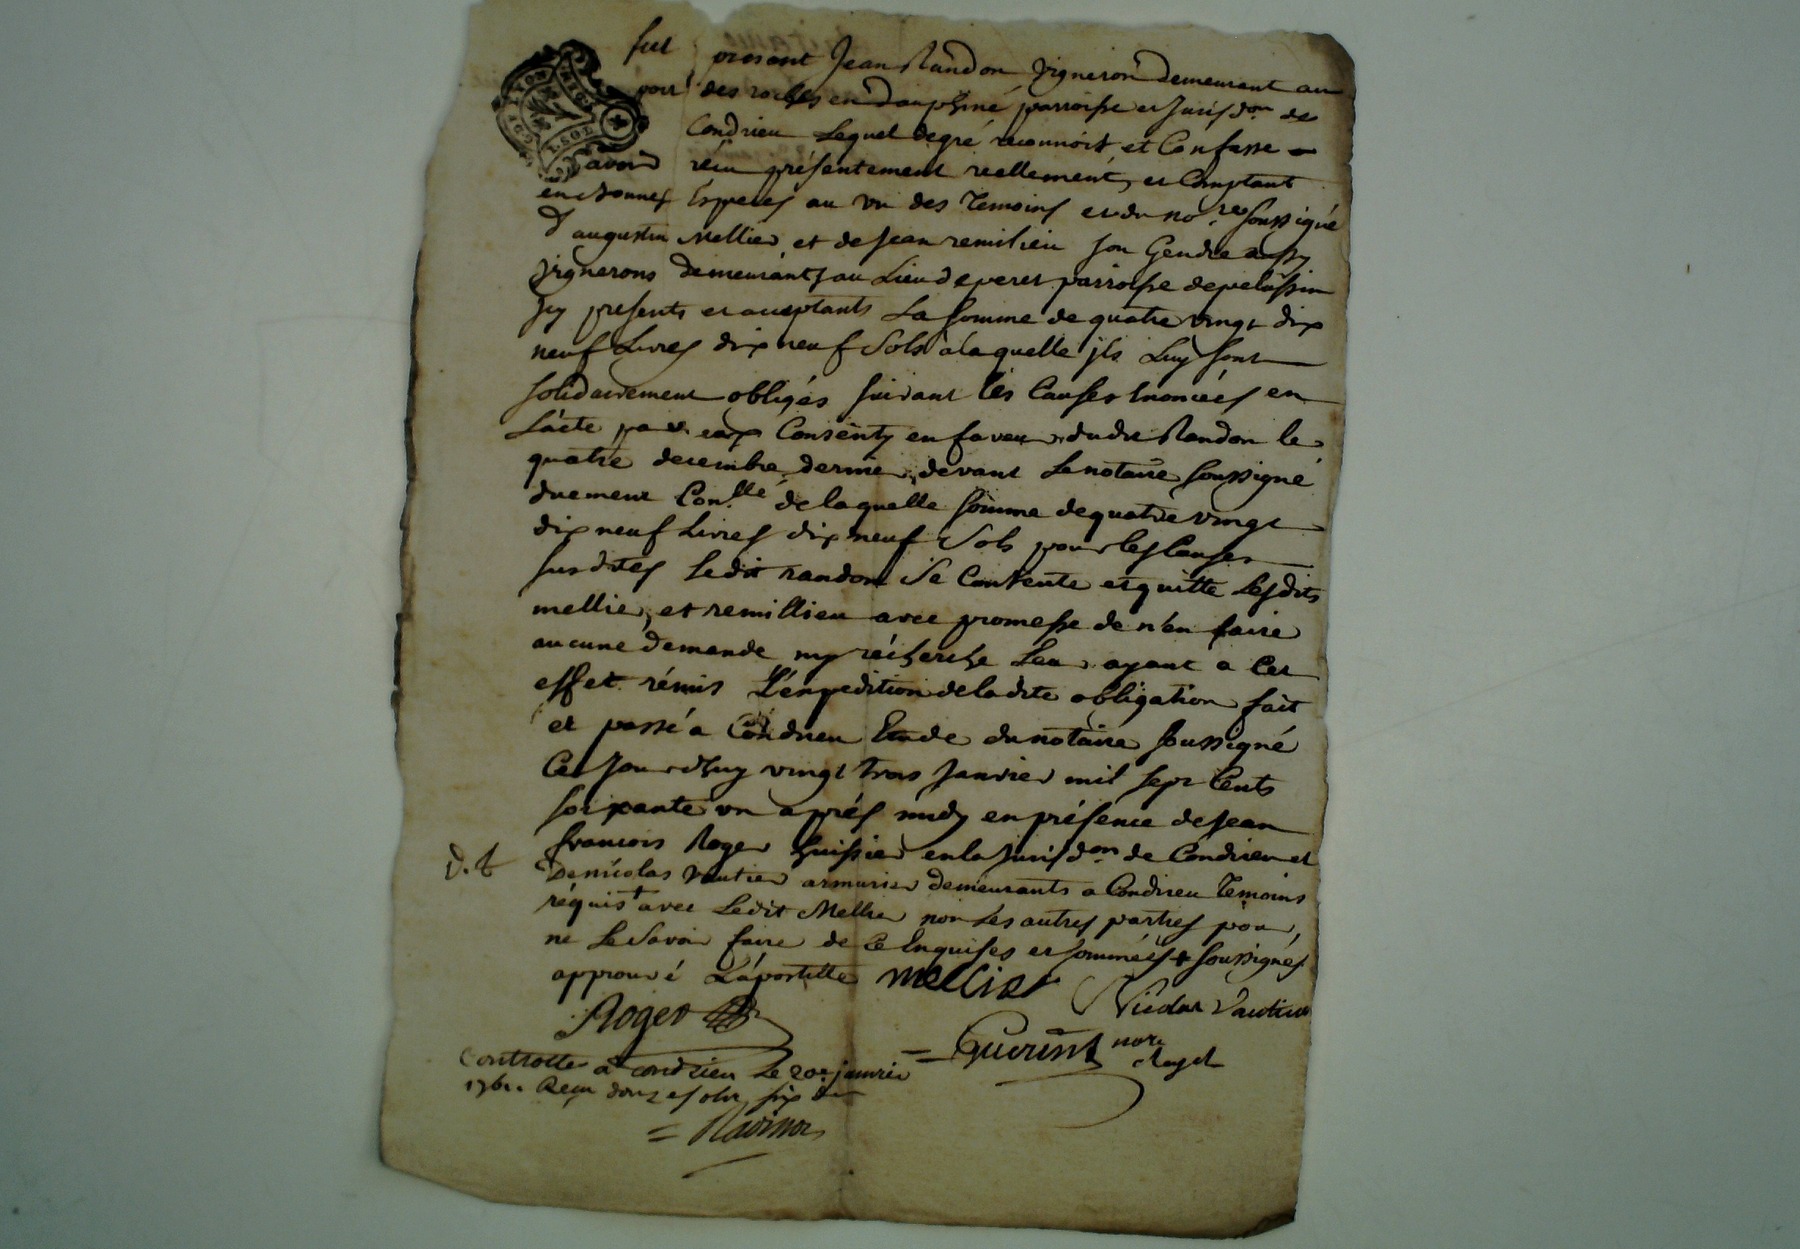 fut présent Jean Randon vigneron demeurant au
port des roches en dauphiné parroisse et Jurisd.on de
Condrieu Lequel de gré reconnoit et Confesse
avoir réçu présentement réellement, et Comptant
en bonnes Especes au vu des Temoins et du no.re soussigné
d'augustin Mellier et de Jean remilieu son Gendre aussy
vignerons demeurants au Lieu de veret parroisse de pelussin
Jcy presents et acceptants La somme de quatre vingt dix
neuf Livres dix neuf Sols a laquelle jls Luy sont
solidairement obligés suivant les Causes Enoncées en
L'acte par eux Consenty en faveur dudit Randon le
quatre decembre dernier, devant Le notaire soussigné
duement Con.llé de laquelle somme de quatre vingt
dix neuf Livres dix neuf Sols pour les Causes
susdites Ledit randon Se Contente et quitte Lesdits
mellier, et remillieu avec promesse de n'en faire
aucune demande ny récherche Leur ayant a Cet
effet rémis L'expedition de ladite obligation fait
et passé a Condrieu Etude du notaire soussigné
Ce Jourdhuy vingt trois Janvier mil sept Cents
soixante un aprés midy en présence de Jean
francois Roger huissier en la Jurisd.on de Condrieu et
De nicolas Vautier armurier demeurants a Condrieu Temoins
réquis + avec Ledit Mellier non Les autres parties pour
ne Le Savoir faire de Ce Enquises et sommées + soussignés
approuvé L'apostille mellier
Nicolas Vautier
Roger
Guerin nore
Controllé a Condrieu le 20e janvier
1761. Reçu douze sols six